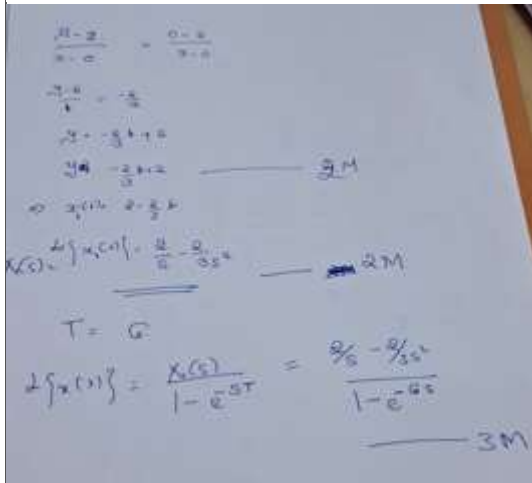 y-2/x-0 = 0-2/3-0
y-2/t = -2/3
y = -2/3 t + 2
y = -2/3 t + 2 —— 2M
⇒ x₁(t) = 2 - 2/3 t
X₁(s) = L{x₁(t)} = 2/s - 2/3s² —— 2M
T = 6
L{x(t)} = X₁(s)/1-e^-ST = 2/s - 2/3s²/1-e^-6s
—— 3M